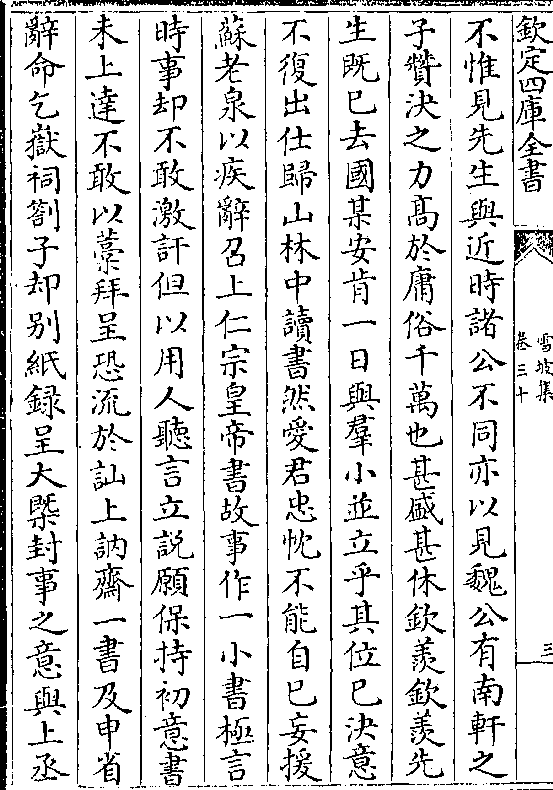 欽定四庫全書
雪坡集
卷三十
三
不惟見先生與近時諸公不同亦以見魏公有南軒之
子贊決之力髙於庸俗千萬也甚盛甚休欽羨欽羨先
生既已去國某安肯一日與羣小並立乎其位已決意
不復出仕歸山林中讀書然愛君忠忱不能自已妄援
蘇老泉以疾辭召上仁宗皇帝書故事作一小書極言
時事却不敢激訐但以用人聽言立説願保持初意書
未上達不敢以藁拜呈恐流於訕上訥齋一書及申省
辭命乞嶽祠劄子却别紙録呈大槩封事之意與上丞